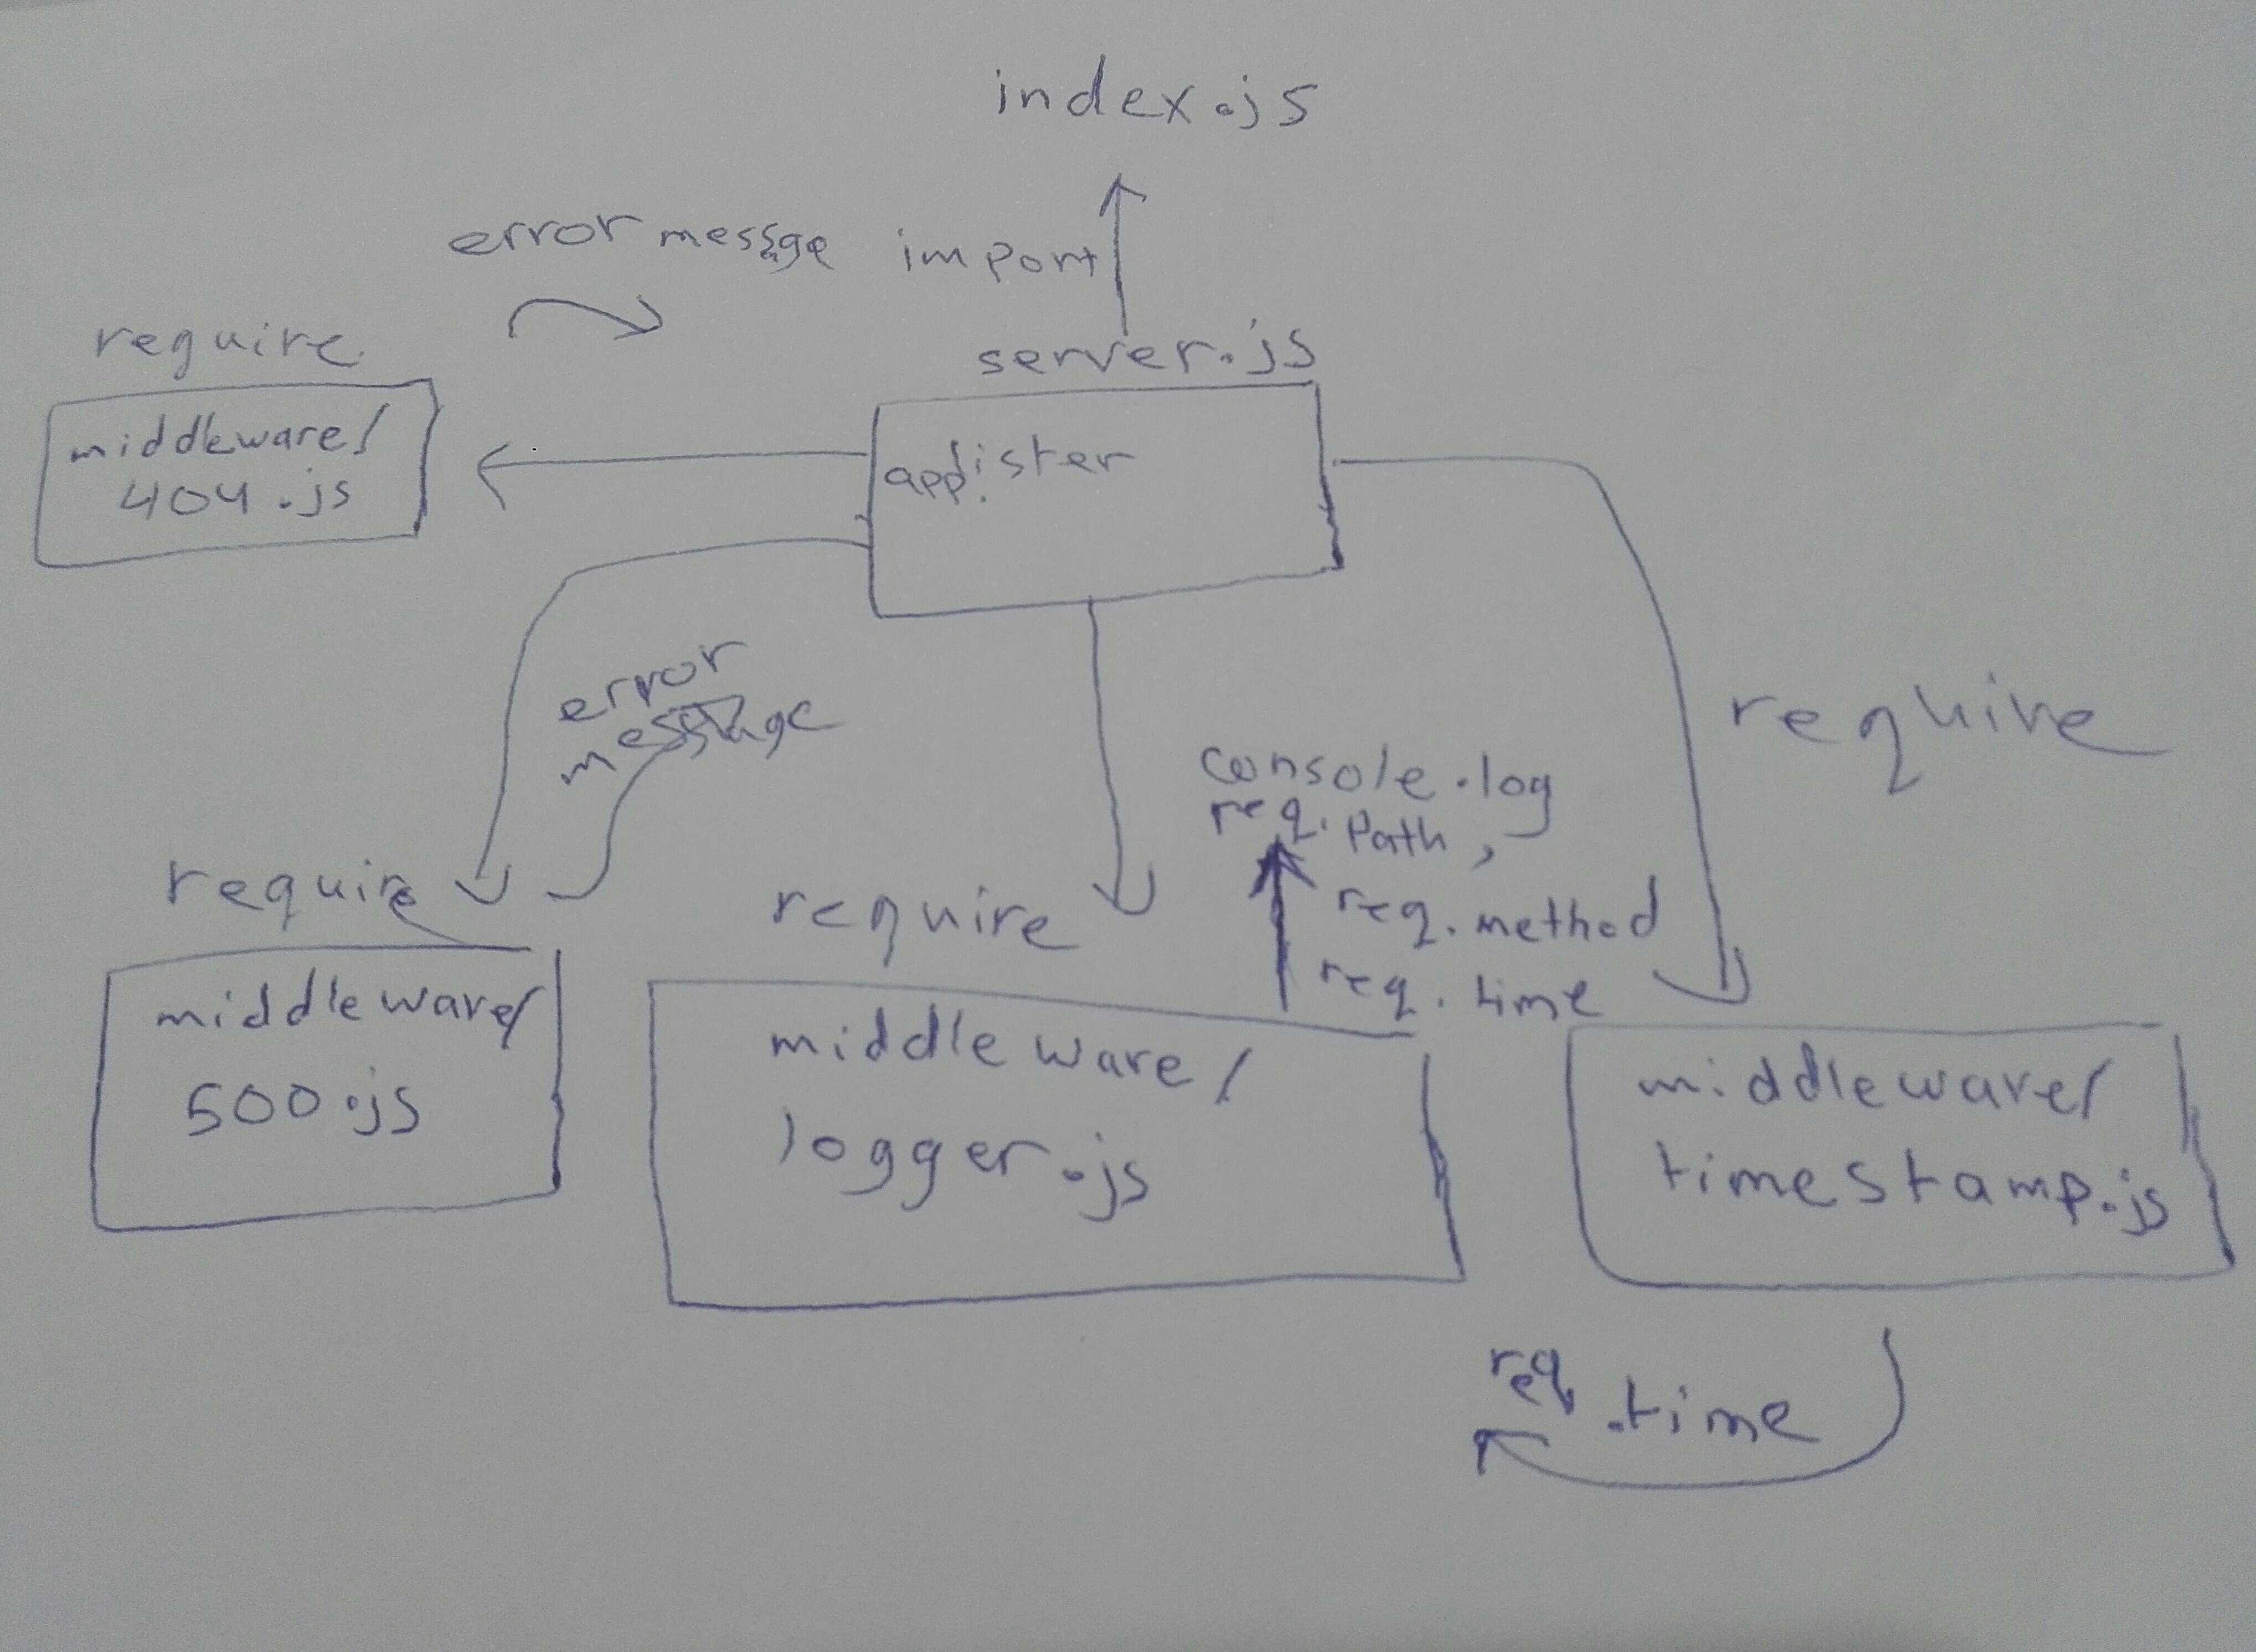 index.js
error message import
server.js
require
middleware/
404.js
error
message
require
console.log
req.path,
req.method
req.time
require
require
middleware/
500.js
middleware/
logger.js
middleware/
timestamp.js
req.time